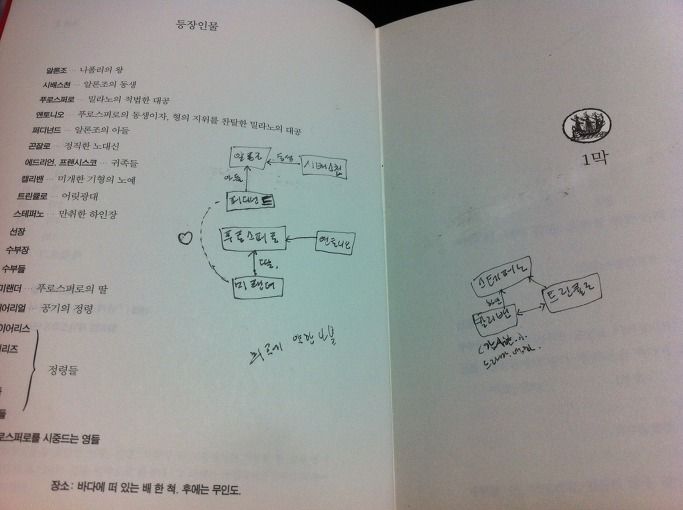 등장인물
알론조 ··· 나폴리의 왕
시배스천 ··· 알론조의 동생
푸로스퍼로 ··· 밀라노의 적법한 대공
앤토니오 ··· 푸로스퍼로의 동생이자, 형의 지위를 찬탈한 밀라노의 대공
퍼디넌드 ··· 알론조의 아들
곤잘로 ··· 정직한 노대신
에드리언, 프랜시스코 ··· 귀족들
캘리밴 ··· 미개한 기형의 노예
트린큘로 ··· 어릿광대
스테파노 ··· 만취한 하인장
선장
수부장
수부들
미랜더 ··· 푸로스퍼로의 딸
에어리얼 ··· 공기의 정령
아이어리스
정령들
로스퍼로를 시중드는 영들
장소: 바다에 떠 있는 배 한 척. 후에는 무인도.
알론조
동생
시배스천
아들
퍼디넌드
푸로스퍼로
앤토니오
딸
미랜더
1막
스테파노
캘리밴
트린큘로